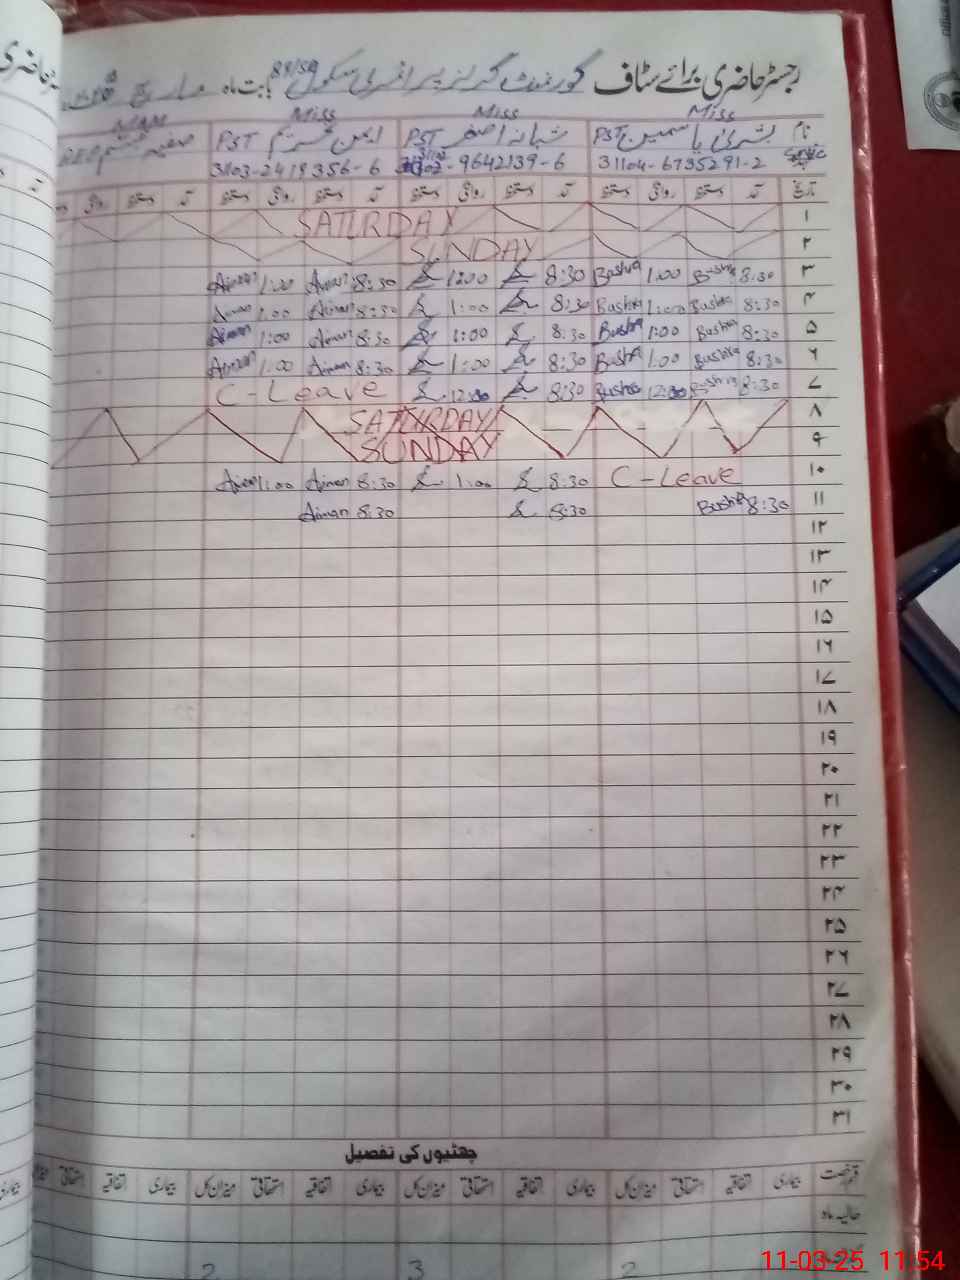 رجسٹر حاضری برائے سٹاف گورنمنٹ گرلز پرائمری سکول 88/5A بابت ماہ مارچ
MAM Miss Miss Miss
نام بشریٰ یاسمین PST شبانہ اصغر PST ایمن PST صفیہ
31104-6735291-2 -9642139-6 31103-2419356-6
تاریخ آمد دستخط روانگی دستخط آمد دستخط روانگی دستخط آمد دستخط روانگی دستخط آمد دستخط روانگی
SATURDAY ۱
SUNDAY ۲
Aiman 1:00 Aiman 8:30 12:00 8:30 Bushra 1:00 Bushra 8:30 ۳
Aiman 1:00 Aiman 8:30 1:00 8:30 Bushra 1:00 Bushra 8:30 ۴
Aiman 1:00 Aiman 8:30 1:00 8:30 Bushra 1:00 Bushra 8:30 ۵
Aiman 1:00 Aiman 8:30 1:00 8:30 Bushra 1:00 Bushra 8:30 ۶
C-Leave 12:00 8:30 Bushra 12:00 Bushra 8:30 ۷
SATURDAY ۸
SUNDAY ۹
Aiman 1:00 Aiman 8:30 1:00 8:30 C-Leave ۱۰
Aiman 8:30 8:30 Bushra 8:30 ۱۱
۱۲
۱۳
۱۴
۱۵
۱۶
۱۷
۱۸
۱۹
۲۰
۲۱
۲۲
۲۳
۲۴
۲۵
۲۶
۲۷
۲۸
۲۹
۳۰
۳۱
چھٹیوں کی تفصیل
قسم رخصت بیماری اتفاقیہ استحقاقی میزان کل بیماری اتفاقیہ استحقاقی میزان کل بیماری اتفاقیہ استحقاقی میزان کل بیماری اتفاقیہ استحقاقی
حالیہ ماہ
2 3 2
11-03-25 11:54